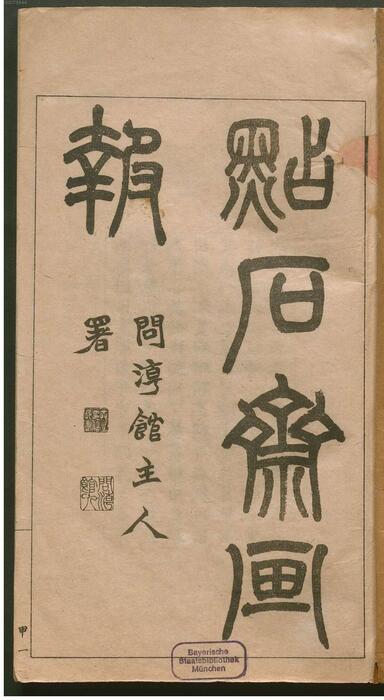 點石齋画
報
問潮館主人
署
甲一
Bayerische
Staatsbibliothek
München